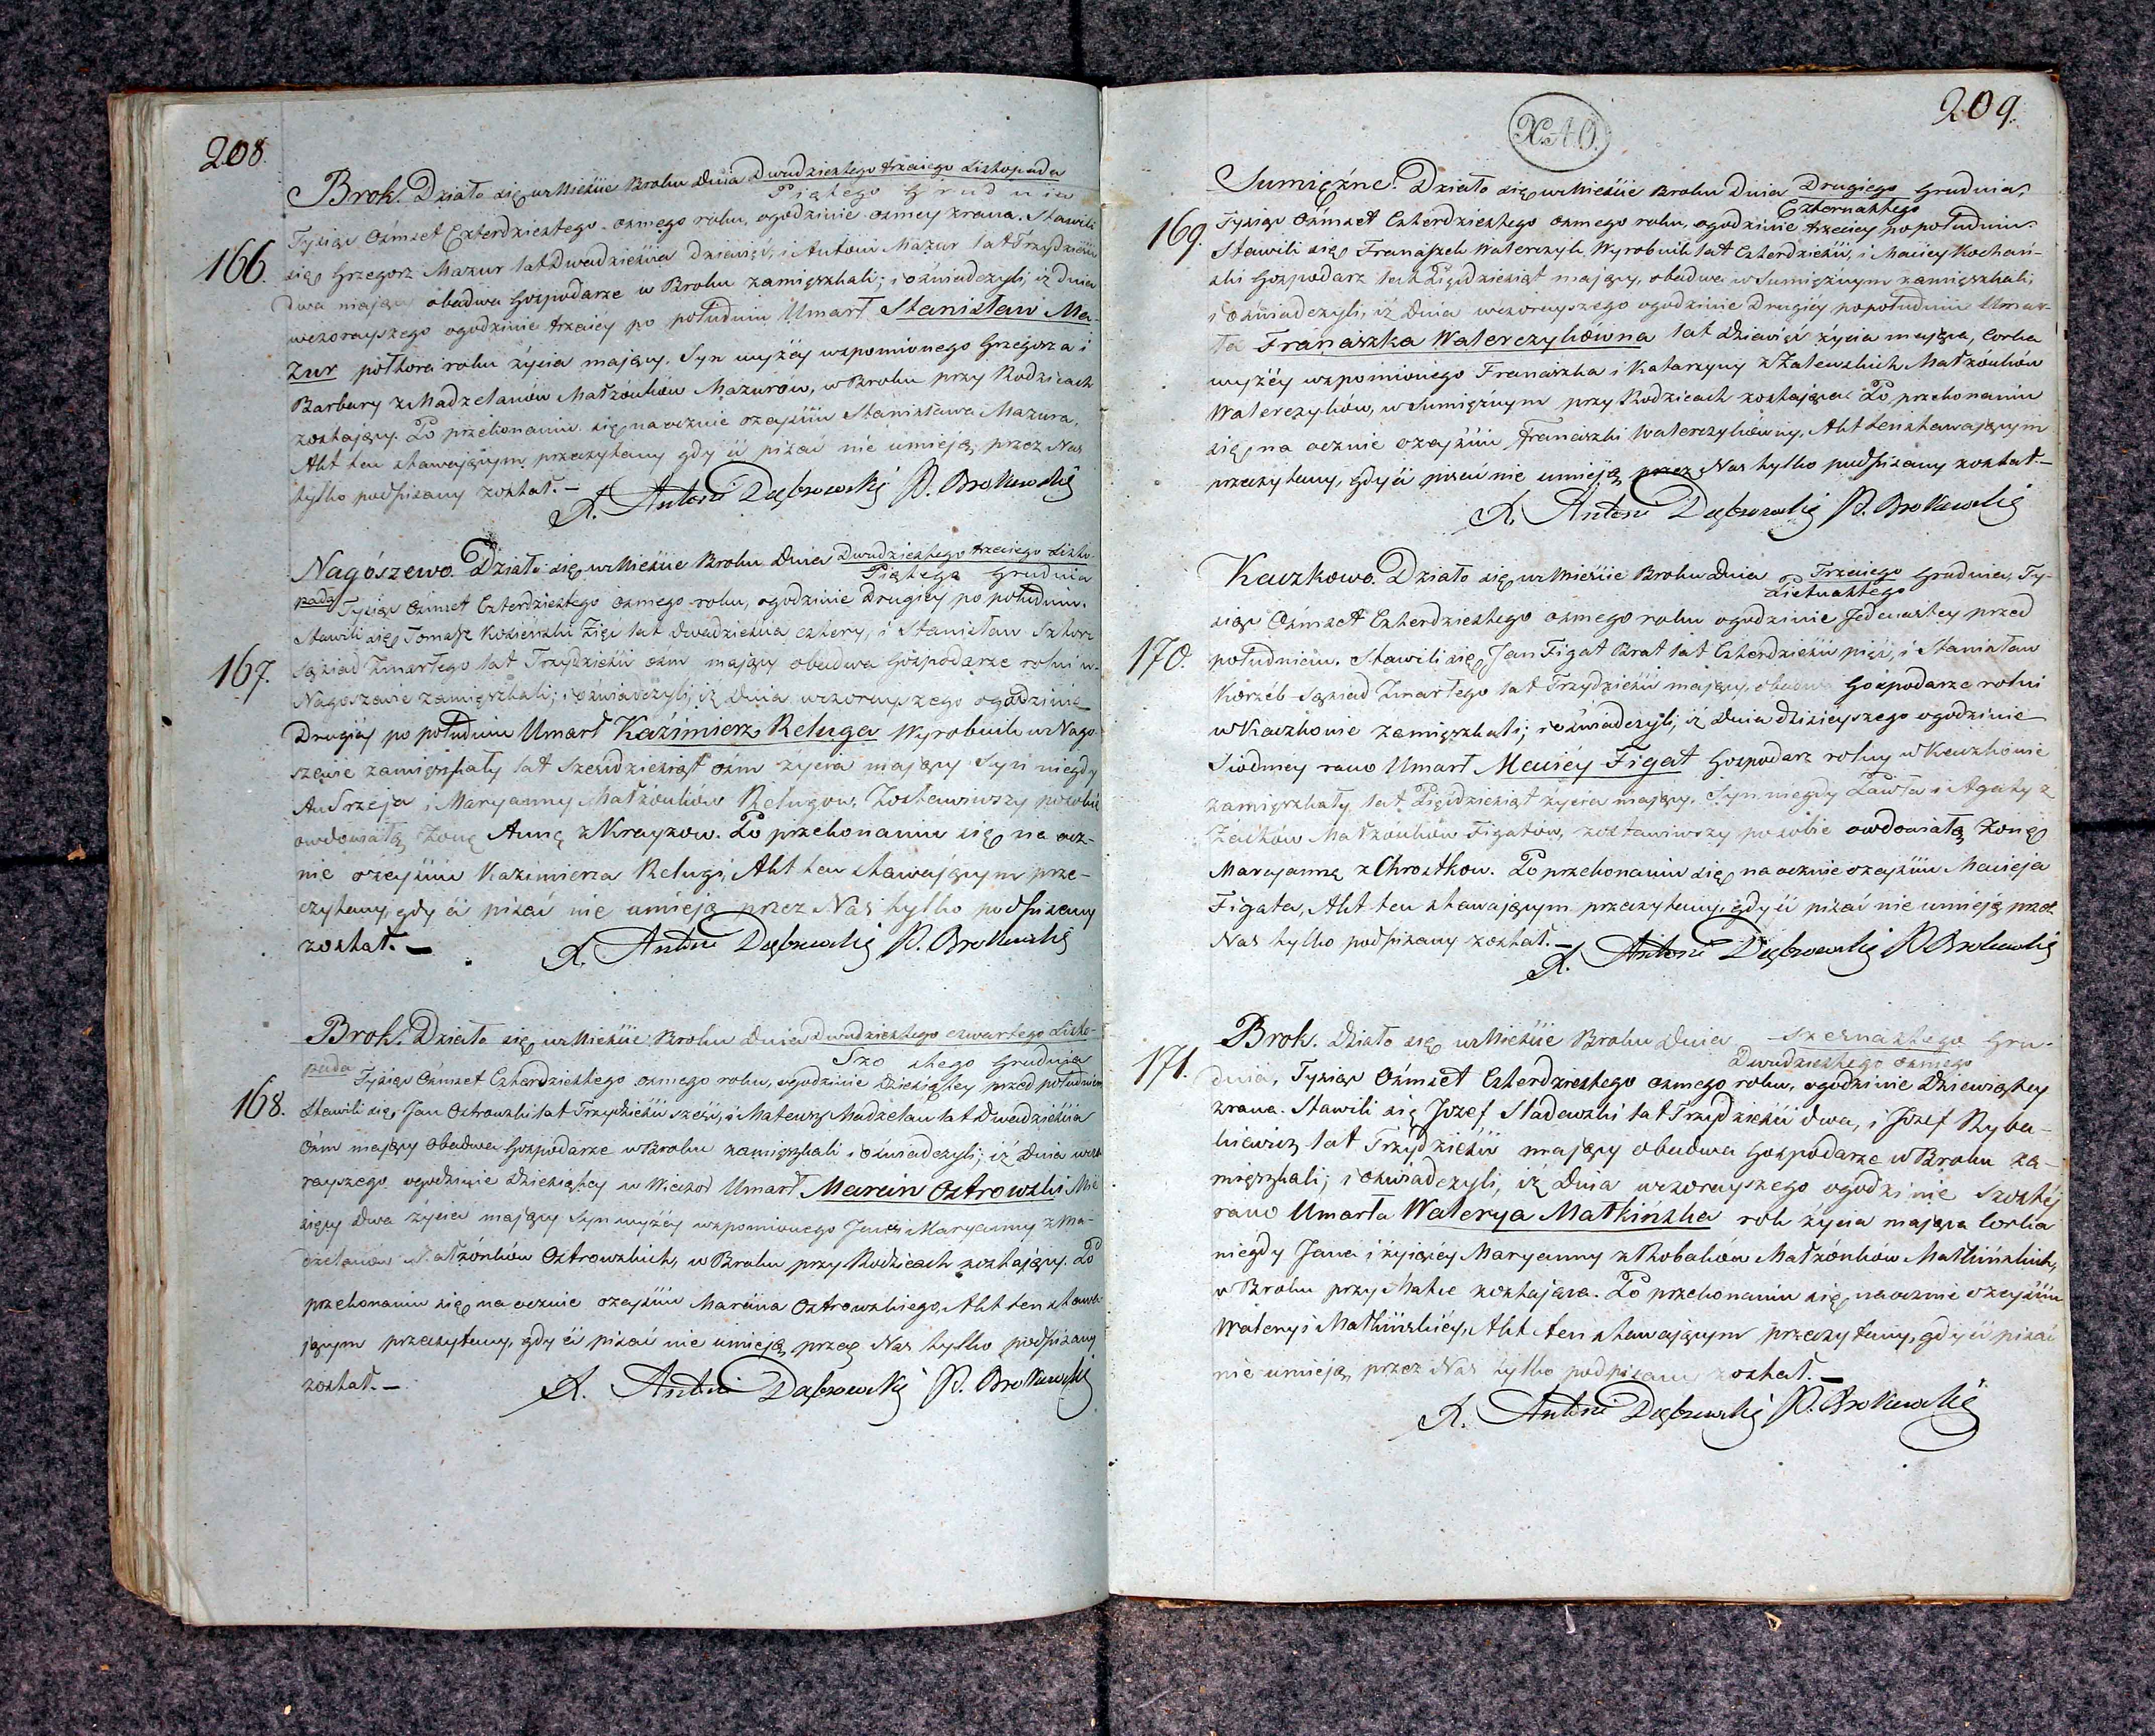 208.
Brok. Działo się w Mieście Broku dnia Dwudziestego trzeciego Listopada
Piątego Grudnia
Tysiąc Ośmset Czterdziestego osmego roku, ogodzinie osmey zrana. Stawili
166. się Grzegorz Mazur lat Dwadzieścia dziewięć, i Antoni Mazur lat Trzydzieści
dwa mający obadwa Gospodarze w Broku zamięszkali; i oświadczyli, iż dnia
wczorayszego ogodzinie trzeciey po południu Umarł Stanisław Ma-
zur półtora roku życia mający. Syn wyżéy wspomionego Grzegorza i
Barbary z Madzelanów Małżonków Mazurów, w Broku przy Rodzicach
zostający. Po przekonaniu się naocznie ozeyściu Stanisława Mazura,
Akt ten stawającym przeczytany gdy ci pisać nie umieją, przez Nas
tylko podpisany został. —
X. Antoni Dąbrowski P. Brokowski
Nagószewo. Działo się w Mieście Broku dnia Dwudziestego trzeciego Listo-
Piątego Grudnia
pada Tysiąc Ośmset Czterdziestego osmego roku, ogodzinie Drugiey po południu.
Stawili się Tomasz Kosieński Zięć lat dwadzieścia cztery, i Stanisław Sztorc
167. Sąsiad Zmarłego lat Trzydzieści ośm mający obadwa Gospodarze rolni w
Nagoszewie zamięszkali; i oświadczyli, iż dnia wczorayszego ogodzinie
Drugiéy po południu Umarł Kaźimierz Reługa Wyrobnik w Nago-
szewie zamięszkały lat Sześćdziesiąt ośm życia mający Syn niegdy
Andrzeja i Maryanny Małżonków Reługow, Zostawiwszy posobie
owdowiałą Żonę Annę z Krayzow. Po przekonaniu się na ocz-
nie ozeyściu Kazimierza Reługi, Akt ten stawającym prze-
czytany, gdy ci pisać nie umieją przez Nas tylko podpisany
został. —
X. Antoni Dąbrowski P. Brokowski
Brok. Działo się w Mieście Broku Dnia Dwudziestego czwartego Listo-
Szo stego Grudnia
pada Tysiąc Ośmset Czterdziestego osmego roku, ogodzinie dziesiątey przed południem
168. Stawili się, Jan Ostrowski lat Trzydzieści sześć, i Mateusz Madzelan lat Dwadzieścia
ośm mający obadwa Gospodarze w Broku zamięszkali i oświadczyli; iż Dnia wczo-
rayszego ogodzinie Dziesiątey w Wieczor Umarł Marcin Ostrowski Mie-
sięcy dwa życia mający Syn wyżéy wspomionego Jana i Maryanny z Ma-
dzelanów Małżónków Ostrowskich, w Broku przy Rodzicach zostający. Po
przekonaniu się naocznie ozeyściu Marcina Ostrowskiego, Akt ten stawa-
jącym przeczytany, gdy ci pisać nie umieją, przez Nas tylko podpisany
został. —
X. Antoni Dąbrowski P. Brokowski
X.A.O.
209.
Sumiężne. Działo się w Mieście Broku Dnia Drugiego Grudnia,
Czternastego
169. Tysiąc Ośmset Czterdziestego osmego roku, ogodzinie trzeciey popołudniu.
Stawili się Franciszek Waterczyk Wyrobnik lat Czterdzieści, i Maciey Kochań-
ski Gospodarz lat Pięćdziesiąt mający, obadwa w Sumiężnym zamięszkali,
i oświadczyli, iż Dnia wczorayszego ogodzinie Drugiéy popołudniu Umar-
ła Franciszka Waterczykówna lat dziewięć życia mająca, Corka
wyżéy wspomionego Franciszka i Katarzyny z Zalewskich Małżónków
Waterczyków, w Sumięznym przy Rodzicach zostająca. Po przekonaniu
się na ocznie ozeyściu Franciszki Waterczykówny, Akt ten stawającym
przeczytany, gdy ci pisać nie umieją, przez Nas tylko podpisany został. —
X. Antoni Dąbrowski P. Brokowski
Kaczkowo. Działo się w Mieście Broku dnia Trzeciego Grudnia, Ty-
Piętnastego
siąc Ośmset Czterdziestego osmego roku ogodzinie Jedenastey przed
170. południem. Stawili się, Jan Figat Brat lat Czterdzieści pięć, i Stanisław
Korzéb Sąsiad Zmarłego lat Trzydzieści mający, obadwa Gospodarze rolni
w Kaczkowie zamięszkali; i oświadczyli, iż Dnia dzisieyszego ogodzinie
Siodmey rano Umarł Maciéy Figat Gospodarz rolny w Kaczkowie
zamięszkały lat Pięćdziesiąt życia mający, Syn niegdy Pawła i Agaty z
Żaczków Małżonków Figatów, zostawiwszy po sobie owdowiałą Żonę
Maryannę z Chrostkow. Po przekonaniu się na ocznie ozeyściu Macieja
Figata, Akt ten stawającym przeczytany, gdy ci pisać nie umieją przez
Nas tylko podpisany został. —
X. Antoni Dąbrowski P. Brokowski
Brok. Działo się w Mieście Broku Dnia Szesnastego Gru-
Dwudziestego osmego
171. dnia, Tysiąc Ośmset Czterdziestego osmego roku, ogodzinie Dziewiątey
zrana. Stawili się Jozef Sladewski lat Trzydzieści dwa, i Jozef Ryba-
kiewicz lat Trzydzieści mający obadwa Gospodarze w Broku za-
mięszkali; i oświadczyli, iż Dnia wczorayszego ogodzinie szostéj
rano Umarła Walerya Małkinska rok życia mająca Corka
niegdy Jana i żyiącéy Maryanny z Robaków Małżónków Małkińskich,
w Broku przy Matce zostająca. Po przekonaniu się, naocznie ozeyściu
Waleryi Małkińskiéy, Akt ten stawającym przeczytany, gdy ci pisać
nie umieją, przez Nas tylko podpisany został. —
X. Antoni Dąbrowski P. Brokowski